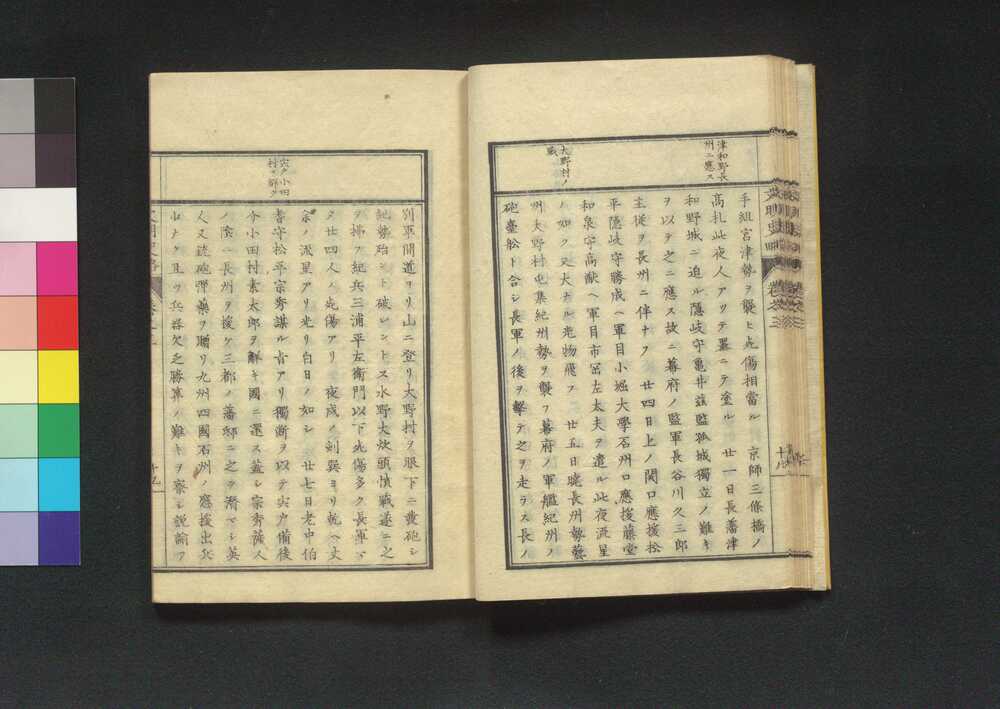 手組宮津勢ヲ襲ヒ死傷相當ル 京師三條橋ノ
高札此夜人アリテ墨ニテ塗ル 廿一日長藩津
和野城ニ迫ル隠岐守亀井茲監孤城獨立ノ難キ
ヲ以テ之ニ應ス故ニ幕府ノ監軍長谷川久三郎
主従ヲ長州ニ伴ナフ 廿四日上ノ関口應援松
平隠岐守勝成ヘ軍目小堀大學石州口應援藤堂
和泉守高猷ヘ軍目市岡左太夫ヲ遣ル此夜流星
ノ如ク又大ナル光物飛フ 廿五日暁長州勢藝
州大野村屯集紀州勢ヲ襲フ幕府ノ軍艦紀州ノ
砲臺舩ト合シ長軍ノ後ヲ撃テ之ヲ走テス長ノ
津和野長
州ニ應ス
大野村ノ
戰
卷之三
十八
別軍間道ヨリ山ニ登リ大野村ヲ眼下ニ發砲シ
紀勢殆ント破レントス水野大炊頭慎戰遂ニ之
ヲ掃フ紀兵三浦平左衛門以下死傷多ク長軍
廿四人ノ死傷アリ 夜戌ノ刻巽ヨリ乾ヘ丈
余ノ流星アリ光リ白日ノ如シ 廿七日老中伯
耆守松平宗秀謀ル㫖アリ獨断ヲ以テ宍户備後
今小田村素太郎ヲ解キ國ニ還ス蓋シ宗秀薩人
ノ陰ニ長州ヲ援ケ三都ノ藩邸ニ之ヲ潜マシ英
人又銃砲彈藥ヲ贈リ九州四國石州ノ應援出兵
ナク且ツ兵器欠乏勝算ノ難キヲ察シ説諭フ
宍户小田
村ヲ解ク
十九